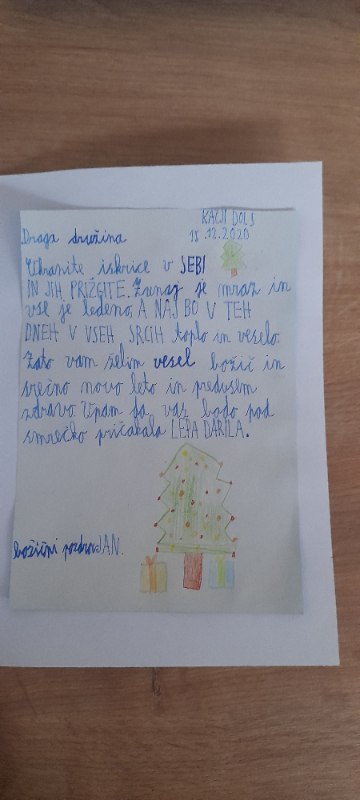 KAČJI DOL,
11.12.2020
Draga družina
Ohranite iskrice v SEBI
IN JIH PRIŽGITE. Zunaj je mraz in
vse je ledeno. A NAJ BO V TEH
DNEH V VSEH SRCIH toplo in veselo.
Zato vam želim vesel božič in
srečno novo leto in predvsem
zdravo. Upam da vas bodo pod
smrečko pričakala LEPA DARILA.
božični pozdrav JAN.